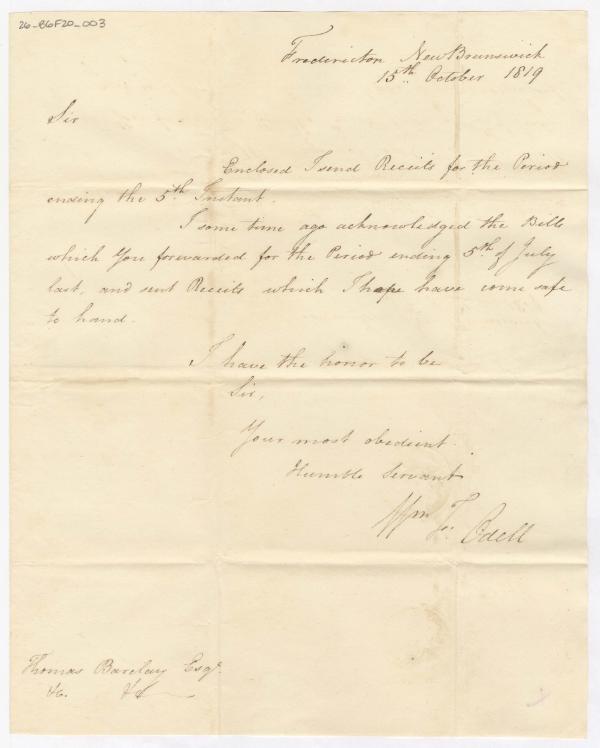 26-B6F20-003
Fredericton New Brunswick
15th October 1819
Sir
Enclosed I send Receits for the Period
ending the 5th Instant.
I some time ago acknowledged the Bills
which You forwarded for the Period ending 5th of July
last, and sent Receits which I hope have come safe
to hand.
I have the honor to be
Sir,
Your most obedient
Humble Servant
Wm F. Odell
Thomas Barclay Esqr.
&c. &c